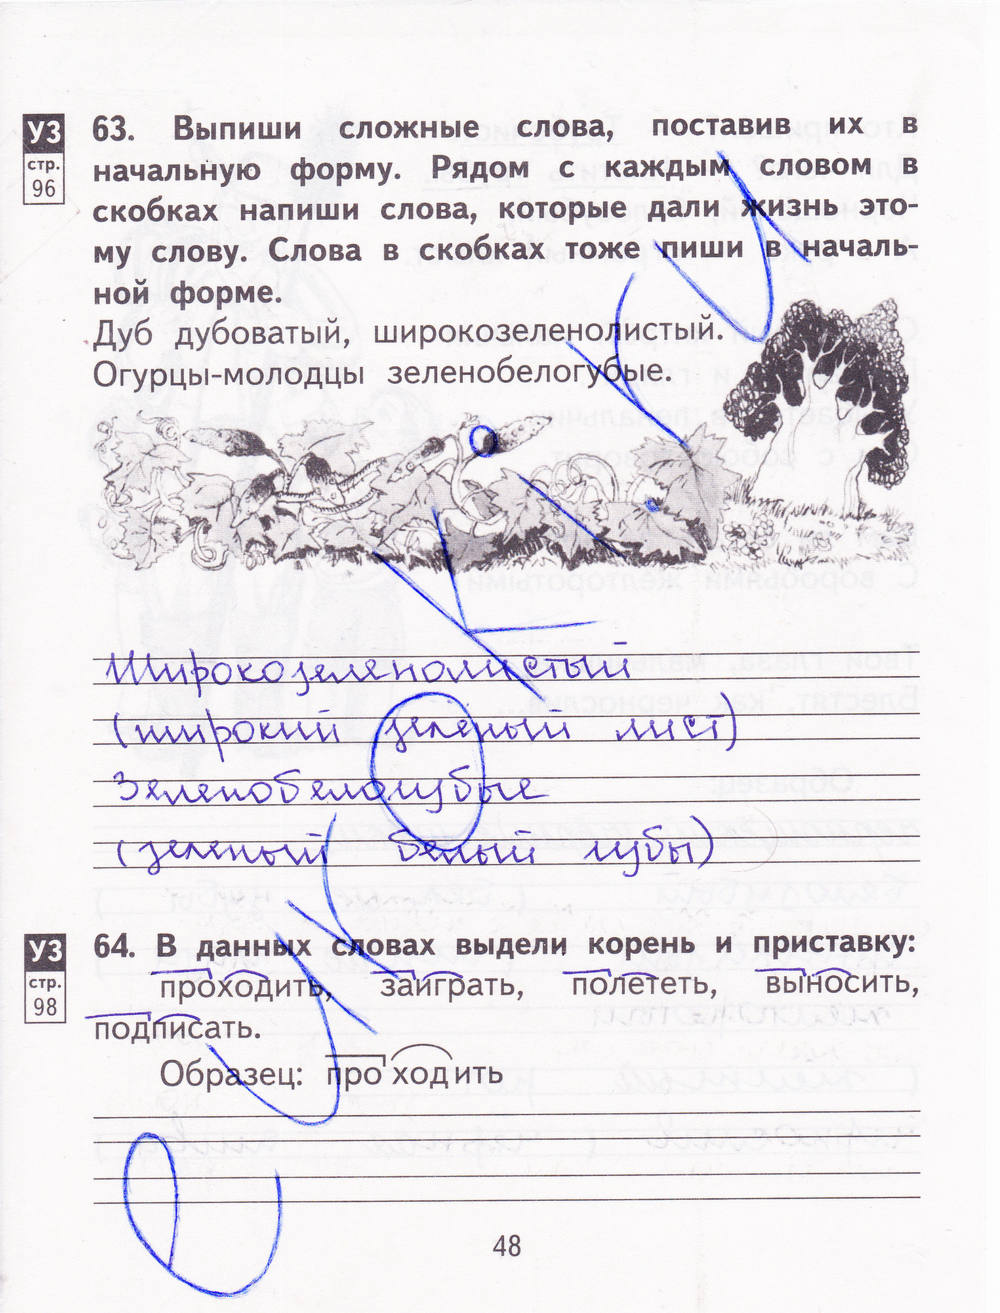 УЗ
стр.
96
63. Выпиши сложные слова, поставив их в
начальную форму. Рядом с каждым словом в
скобках напиши слова, которые дали жизнь это-
му слову. Слова в скобках тоже пиши в началь-
ной форме.
Дуб дубоватый, широкозеленолистый.
Огурцы-молодцы зеленобелогубые.
Широкозеленолистый
(широкий зеленый лист)
Зеленобелогубые
(зеленый белый губы)
УЗ
стр.
98
64. В данных словах выдели корень и приставку:
проходить, заиграть, полететь, выносить,
подписать.
Образец: про ход ить
48